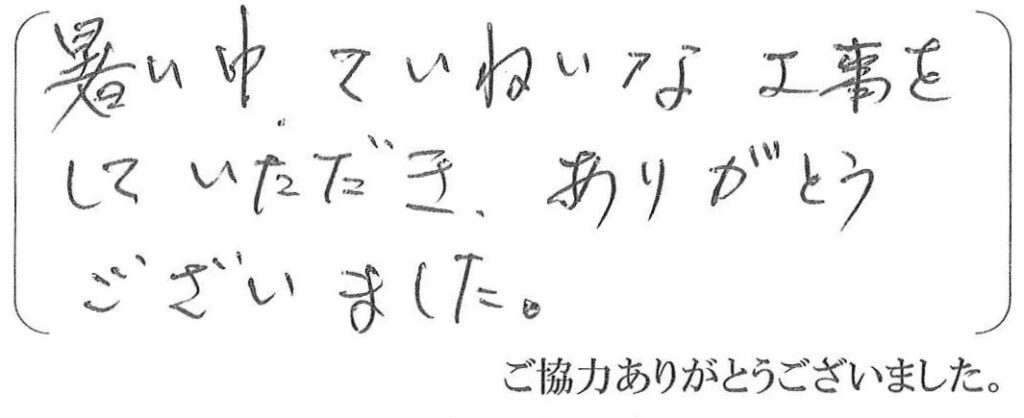 暑い中、ていねいな工事を
していただき、ありがとう
ございました。
ご協力ありがとうございました。